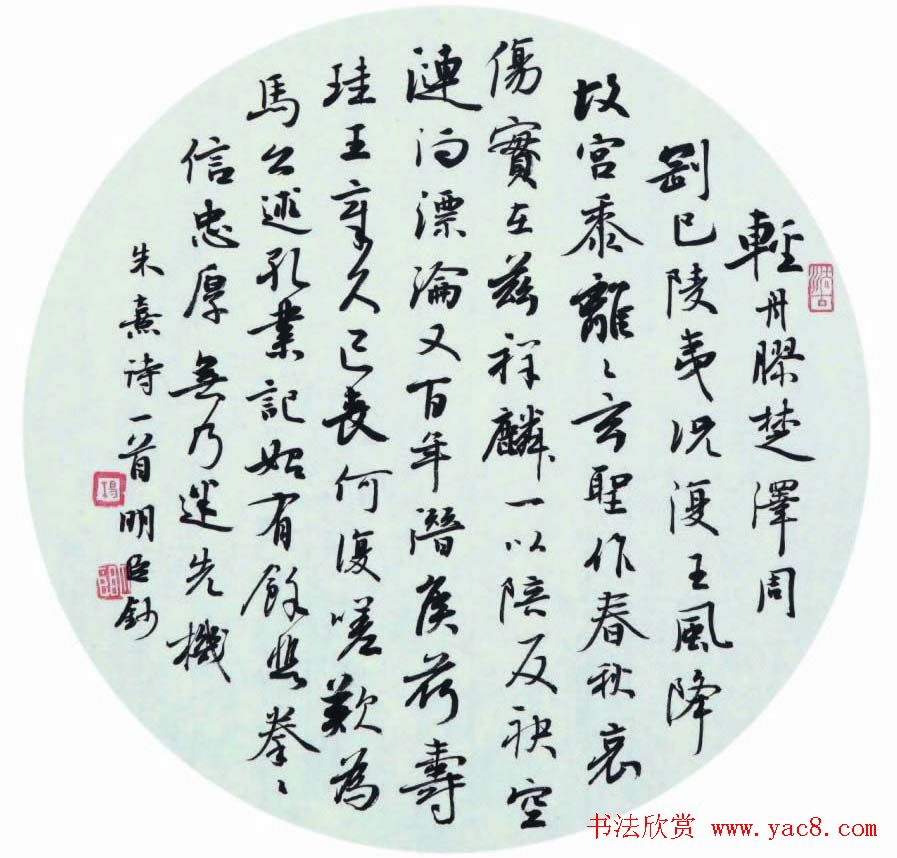 輕舟膠楚澤周
剛已陵夷况復王風降
故宫黍離〻玄聖作春秋哀
傷實在兹祥麟一以陪反袂空
漣洏漂淪又百年潛侯荷壽
珪王章久已喪何復嗟歎為
馬公述孔業記始有餘悲拳〻
信忠厚無乃迷先機
朱熹诗一首明臣鈔
书法欣赏 www.yac8.com